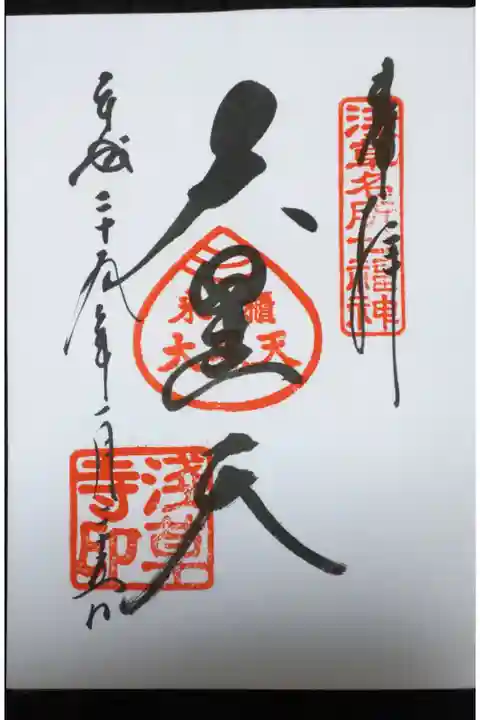 奉拝
浅草名所七福神
大黒天
米櫃
大黒天
平成二十五年一月
淺草寺印